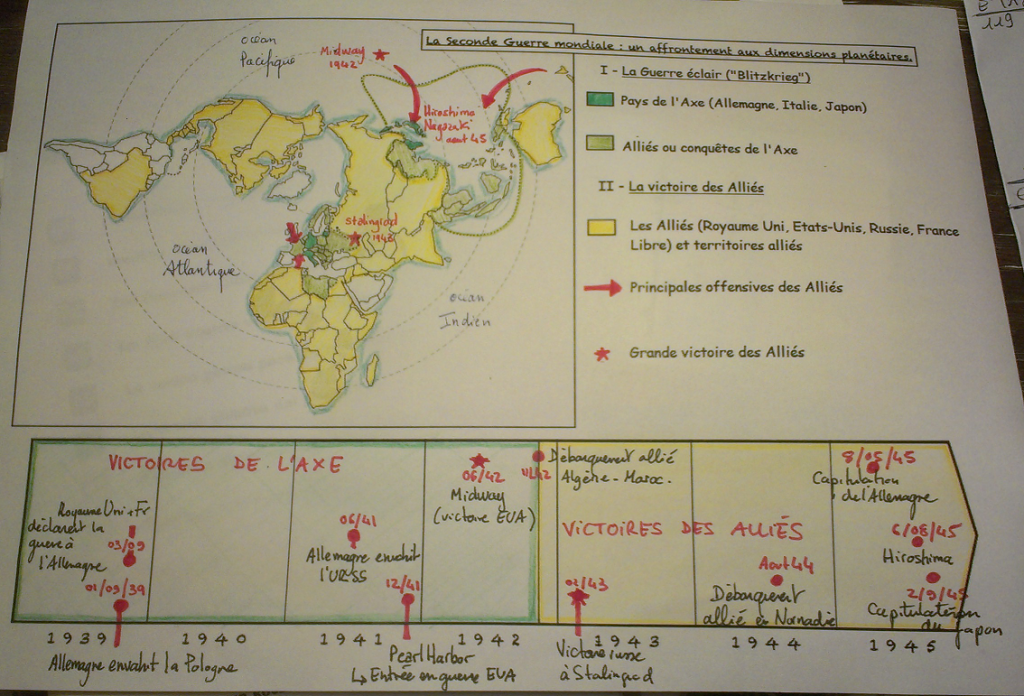 119
La Seconde Guerre mondiale : un affrontement aux dimensions planétaires.
océan
Pacifique
Midway
1942
Hiroshima
Nagazaki
aout 45
stalingrad
océan
Atlantique
océan
Indien
I - La Guerre éclair ("Blitzkrieg")
Pays de l'Axe (Allemagne, Italie, Japon)
Alliés ou conquêtes de l'Axe
II - La victoire des Alliés
Les Alliés (Royaume Uni, Etats-Unis, Russie, France
Libre) et territoires alliés
Principales offensives des Alliés
Grande victoire des Alliés
VICTOIRES DE L'AXE
Royaume Uni + Fr
déclarent la
guerre à
l'Allemagne
03/09
01/09/39
06/41
Allemagne envahit
l'URSS
12/41
06/42
Midway
(victoire EUA)
11/42
Débarquement allié
Algérie - Maroc.
VICTOIRES DES ALLIÉS
02/43
Aout 44
Débarquement
allié en Normandie
8/05/45
Capitulation
de l'Allemagne
6/08/45
Hiroshima
2/9/45
Capitulation
du Japon
1939 1940 1941 1942 1943 1944 1945
Allemagne envahit la Pologne
Pearl Harbor
↳ Entrée en guerre EUA
Victoire russe
à Stalingrad